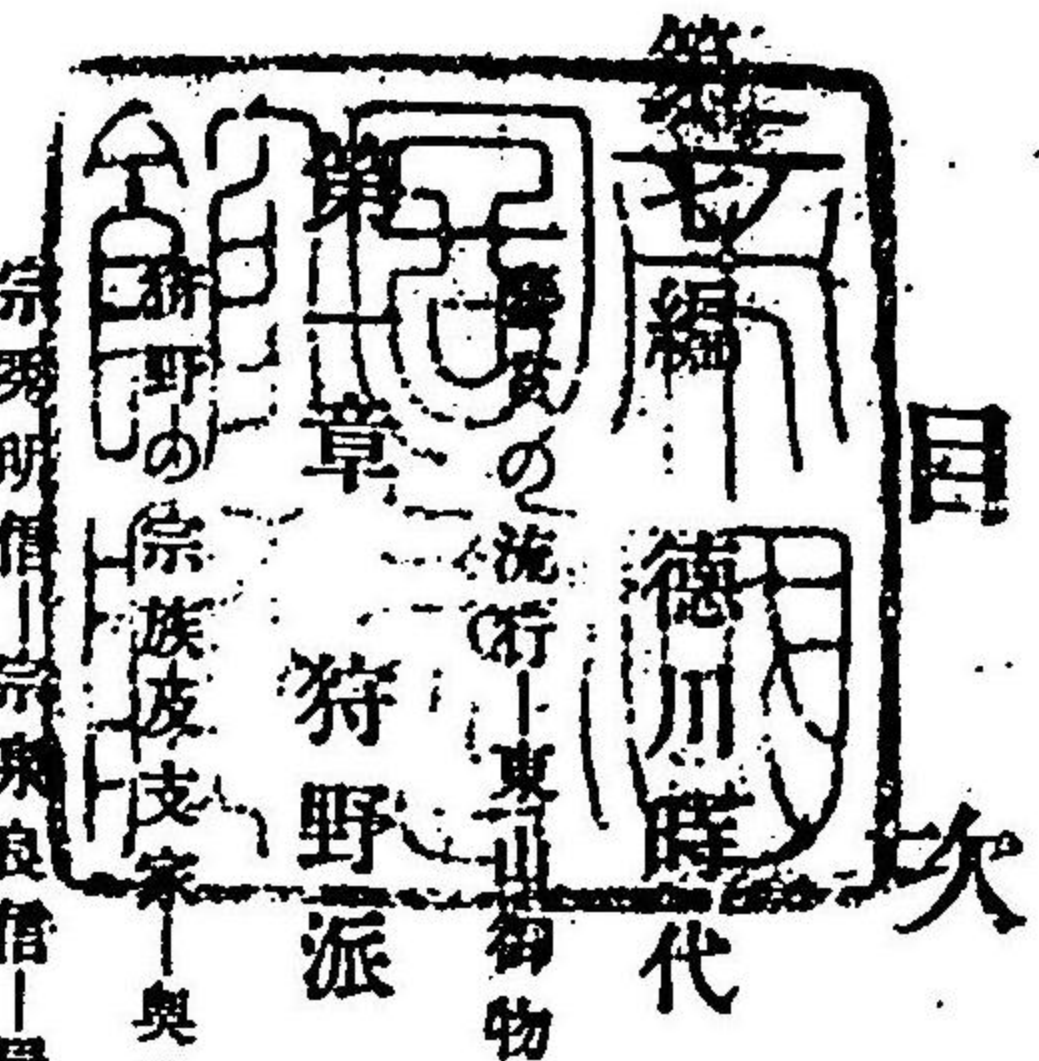 目次
第七編 徳川時代
の流行—東山御物
第一章 狩野派
狩野の宗族及支家—奥
宗秀明信—宗泉良信—